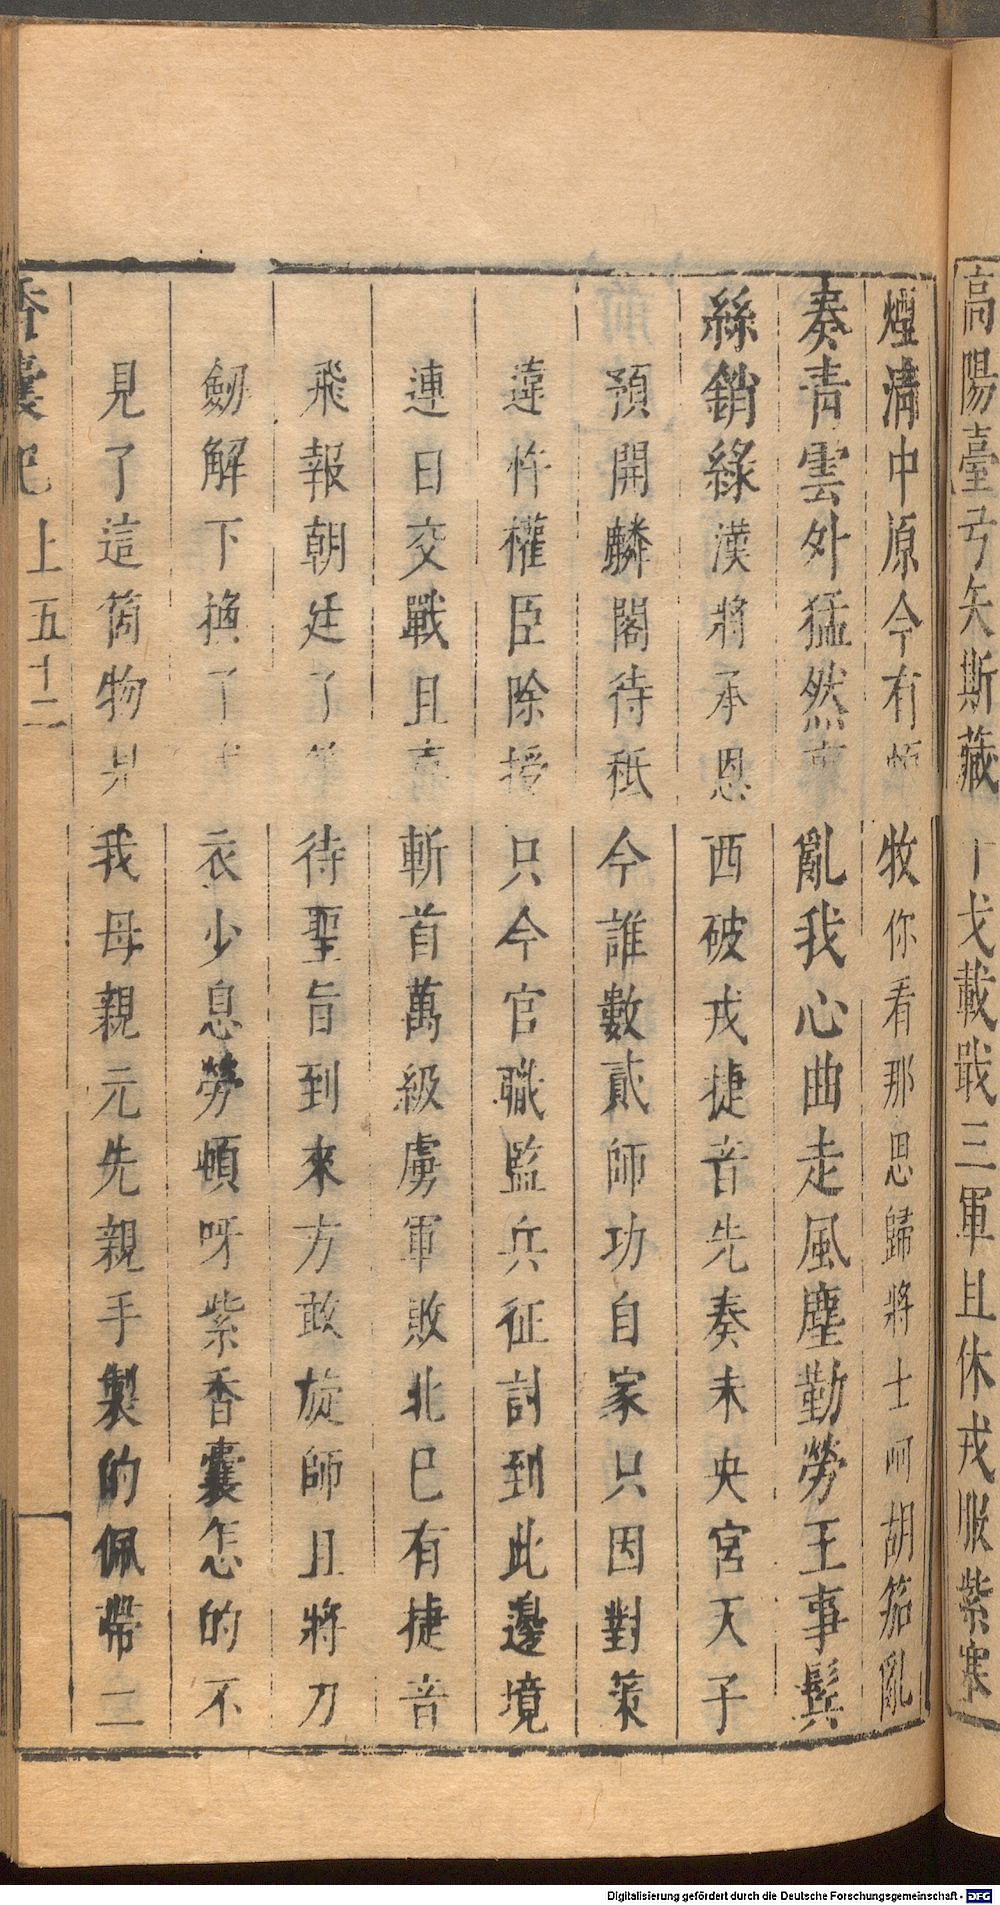 高陽臺弓矢斯藏干戈載戢三軍且休戎服紫塞
煙清中原今有頗牧你看那思歸將士呵胡笳亂
奏青雲外猛然裏亂我心曲走風塵勤勞王事鬂
絲銷綠漢將承恩西破戎捷音先奏未央宮天子
預開麟閣待秪今誰數貳師功自家只因對策
違忤權臣除授只今官職監兵征討到此邊境
連日交戰且喜斬首萬級虜軍敗北已有捷音
飛報朝廷了等待聖旨到來方敢旋師且將刀
劒解下換了衣少息勞頓呀紫香囊怎的不
見了這箇物是我母親元先親手製的佩帶二
香囊記 上 五十二
Digitalisierung gefördert durch die Deutsche Forschungsgemeinschaft - DFG